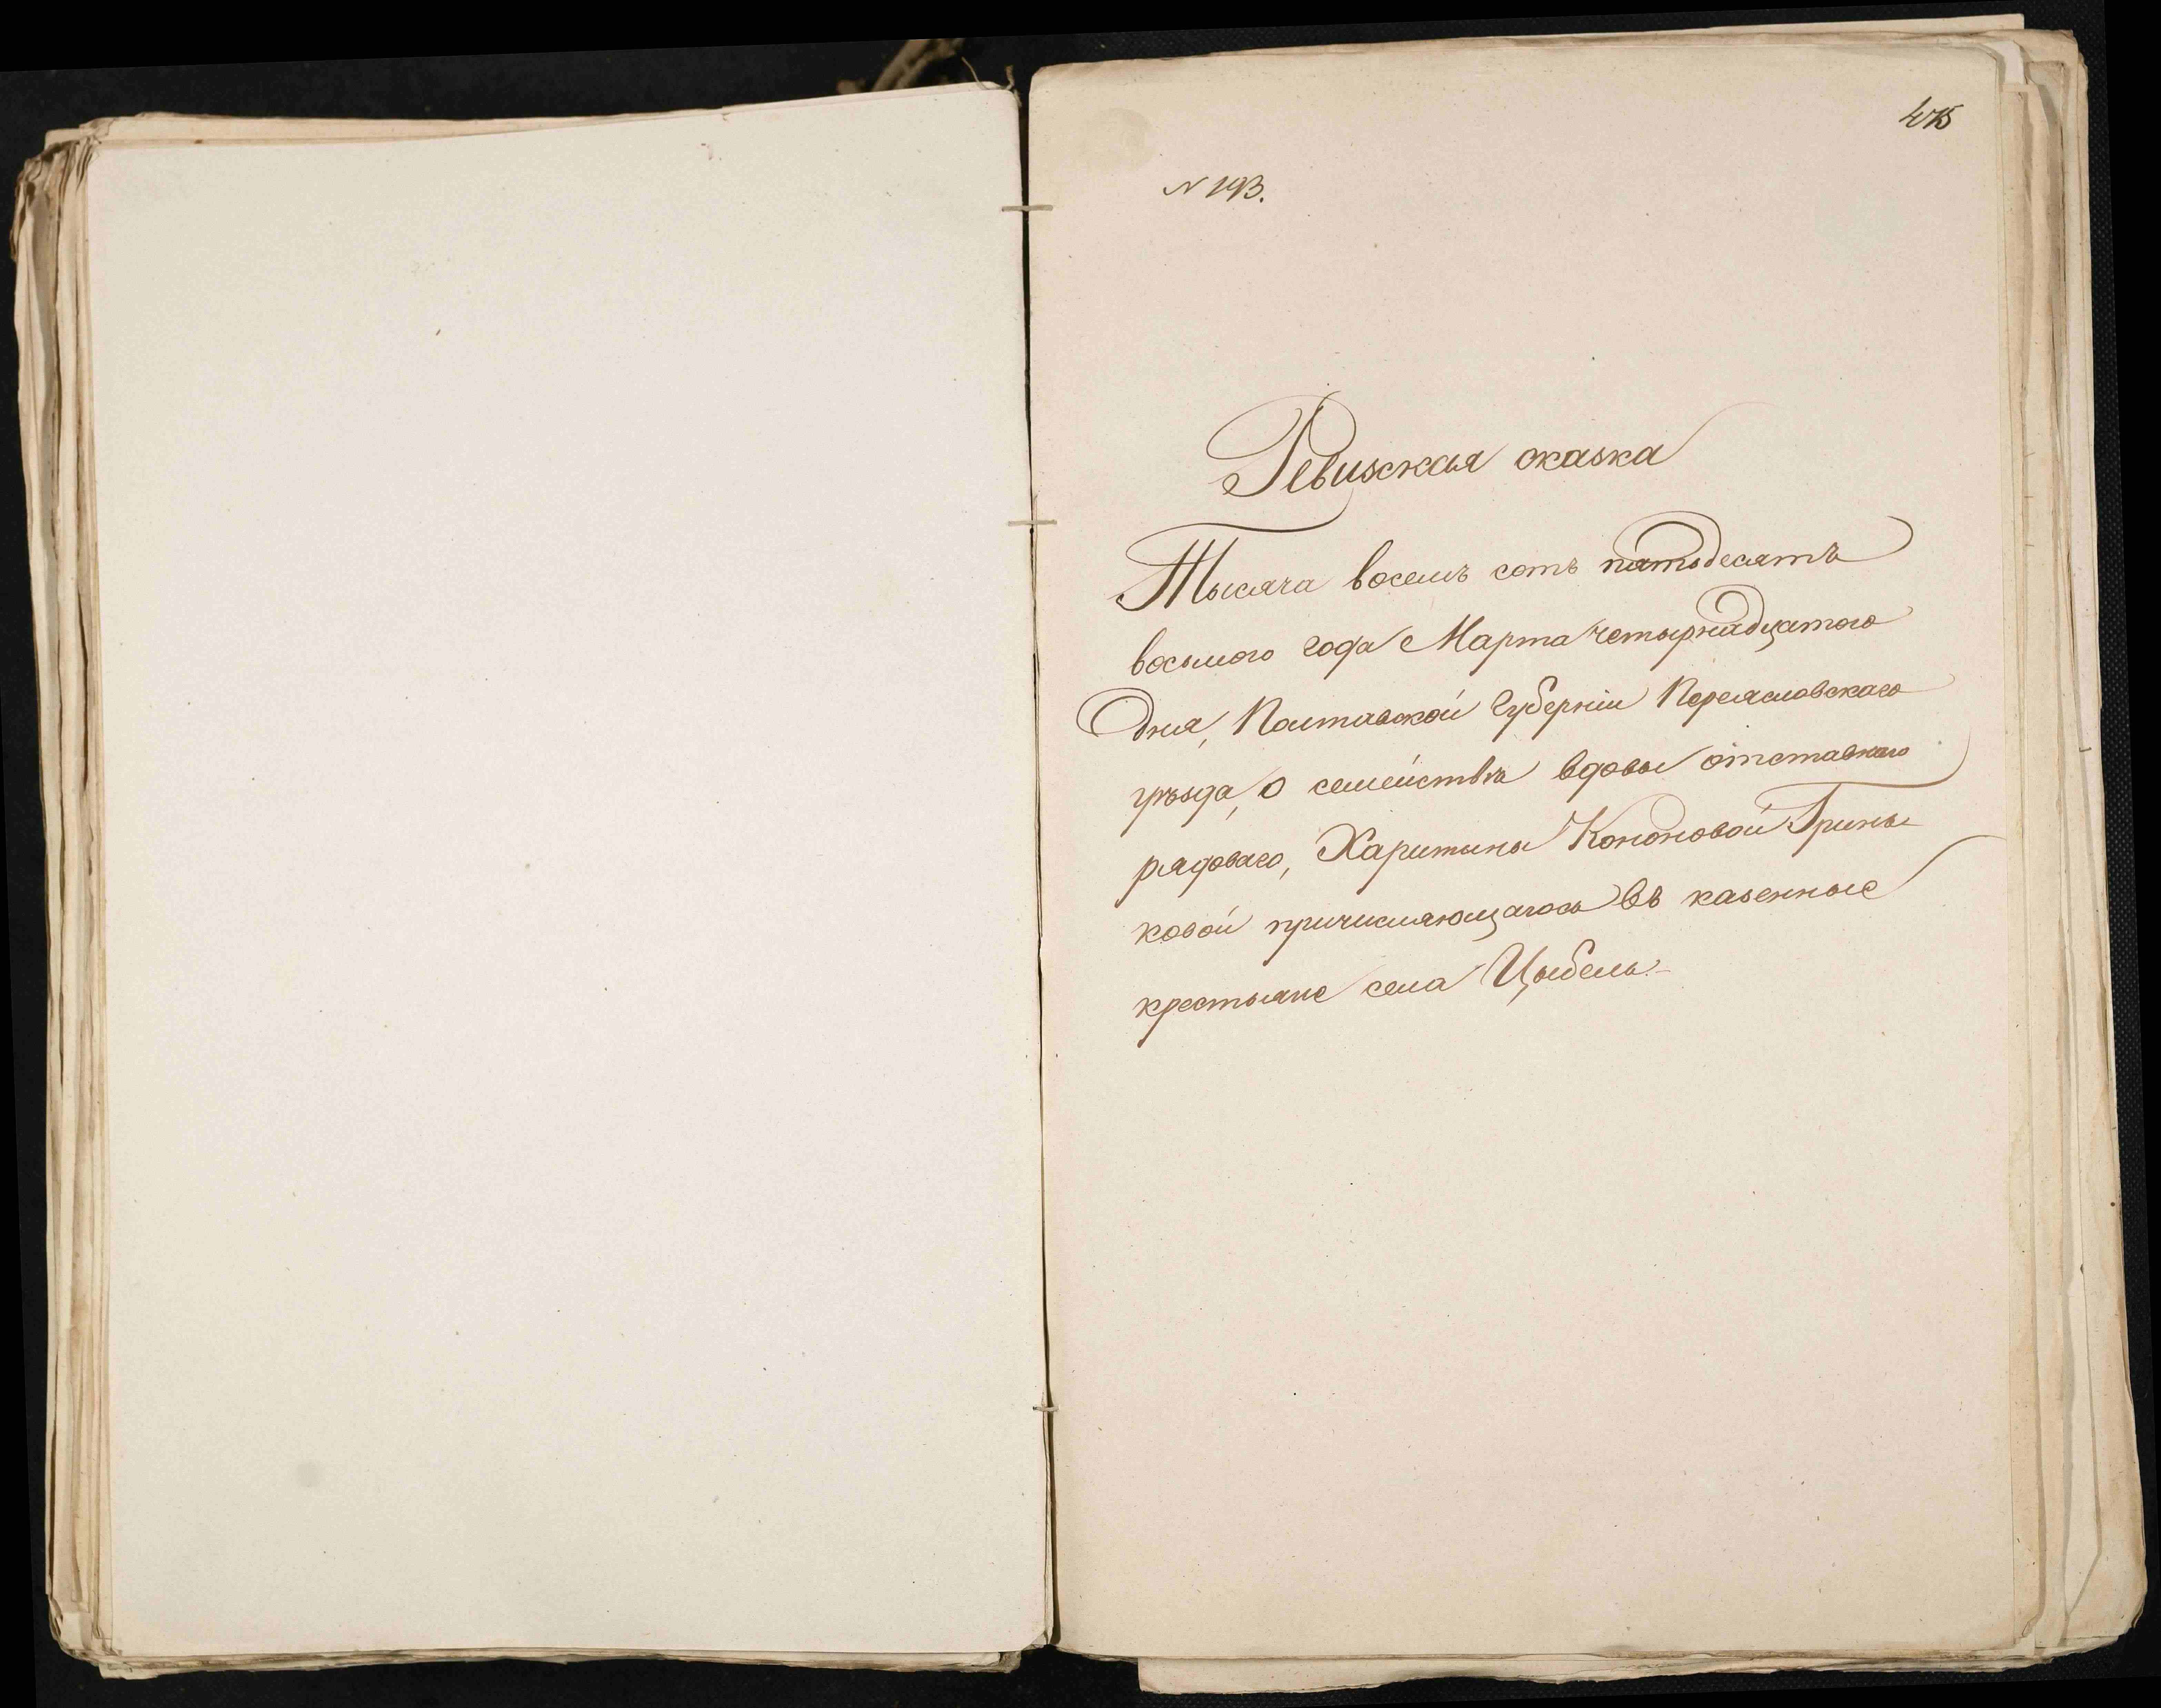 N 193.
Ревизская сказка
Тысяча восемь сотъ пятьдесятъ
восьмого года Марта четырнадцатого
дня, Полтавской Губерніи Переяславскаго
уѣзда, о семействѣ вдовы отставнаго
рядоваго, Харитины Кононовой Гринь-
ковой причисляющагось въ казенные
крестьяне села Цыбель